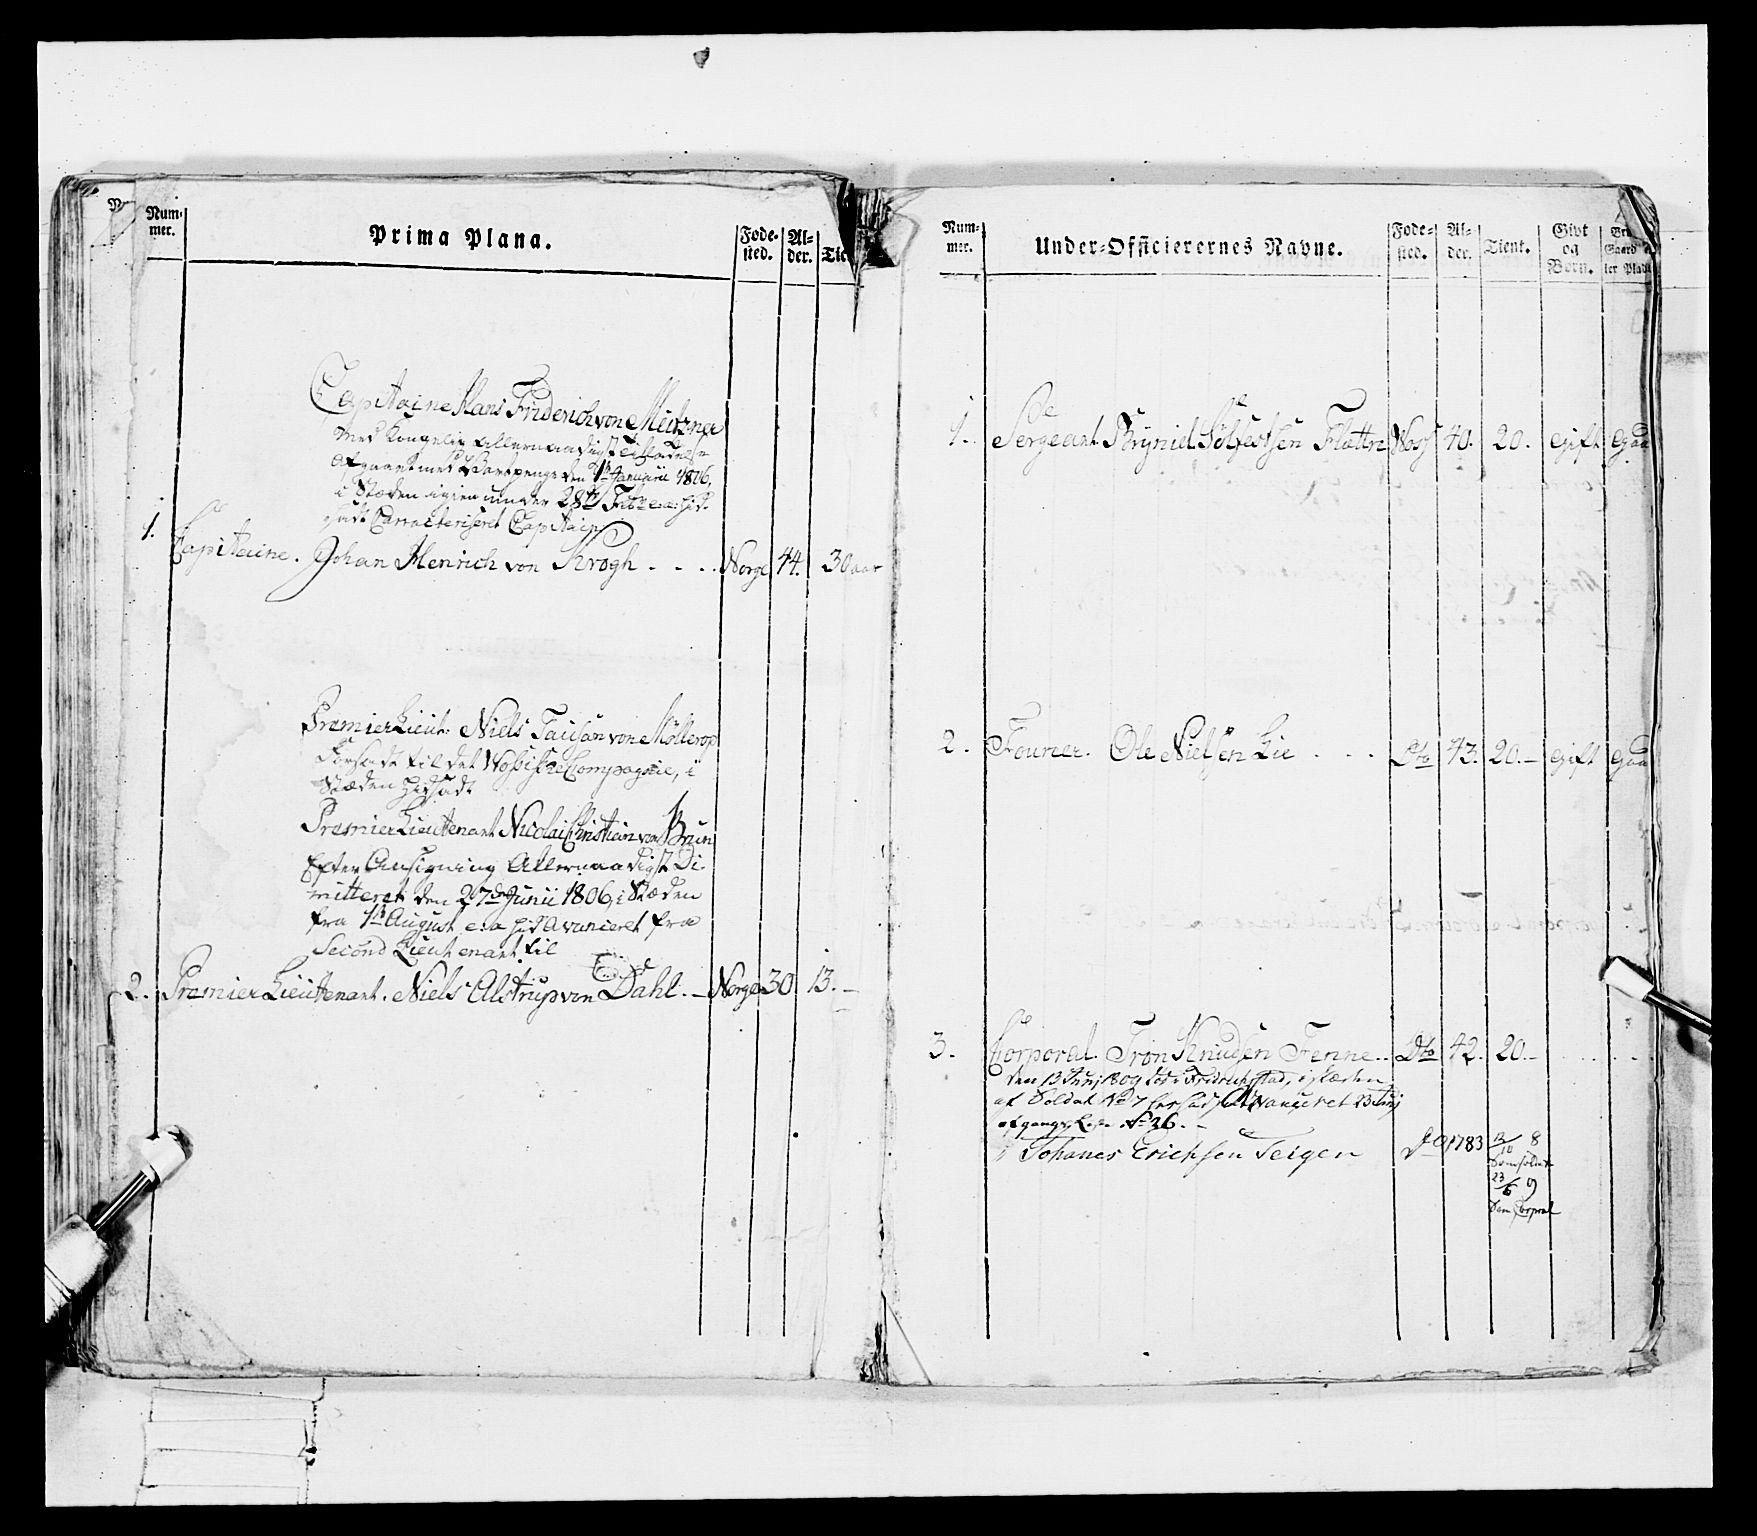 Num-
mer.
Prima Plana.
Føde-
sted.
Al-
der.
Capitaine Hans Friderich von Meitzner
med Kongelig allernaadigst Tilladelse
Afgaaet med Vartpenge den 1ste Januarii 1806,
i Stæden igien under 28de Febr: e: a: hid-
sadt Carracteriseret Capitain
1. Capitaine. Johan Henrich von Krogh . . . Norge 44. 30 aar
Premier Lieut: Niels Tausan von Møllerop
Forsadt til det Wossiske Compagnie, i
Stæden hidsadt
Premier Lieutenant Nicolai Christian von Brun
Efter Ansøgning Allernaadigst Di-
mitteret den 27de Junii 1806, i Stæden
fra 1te August e: a hid Avanceret fra
Second Lieutenant til
2. Premier Lieutenant. Niels Alstrup von Dahl. – Norge 30 13. –
Num-
mer.
Under-Officierernes Navne.
Føde-
sted.
Al-
der.
Tient.
Givt
og
Børn.
Gaard
ler Plads
1. Sergeant. Bryniel Sølfestsen Flattre Woss 40. 20. gift Gaa
2. Foureer. Ole Nielsen Lie . . . Dto 43. 20. – gift Gaa
3. Corporal. Tron Knudsen Fenne . . Dto 42. 20. –
den 13 Junj 1809 død i Fridrichstad, i stæden
af Soldat No 7 Avanceret 23 Junj
afgangs No 26. –
Johanes Erichsen Teigen Do 1783 12/10 8
Som soldat
23/6 9
Som Corporal